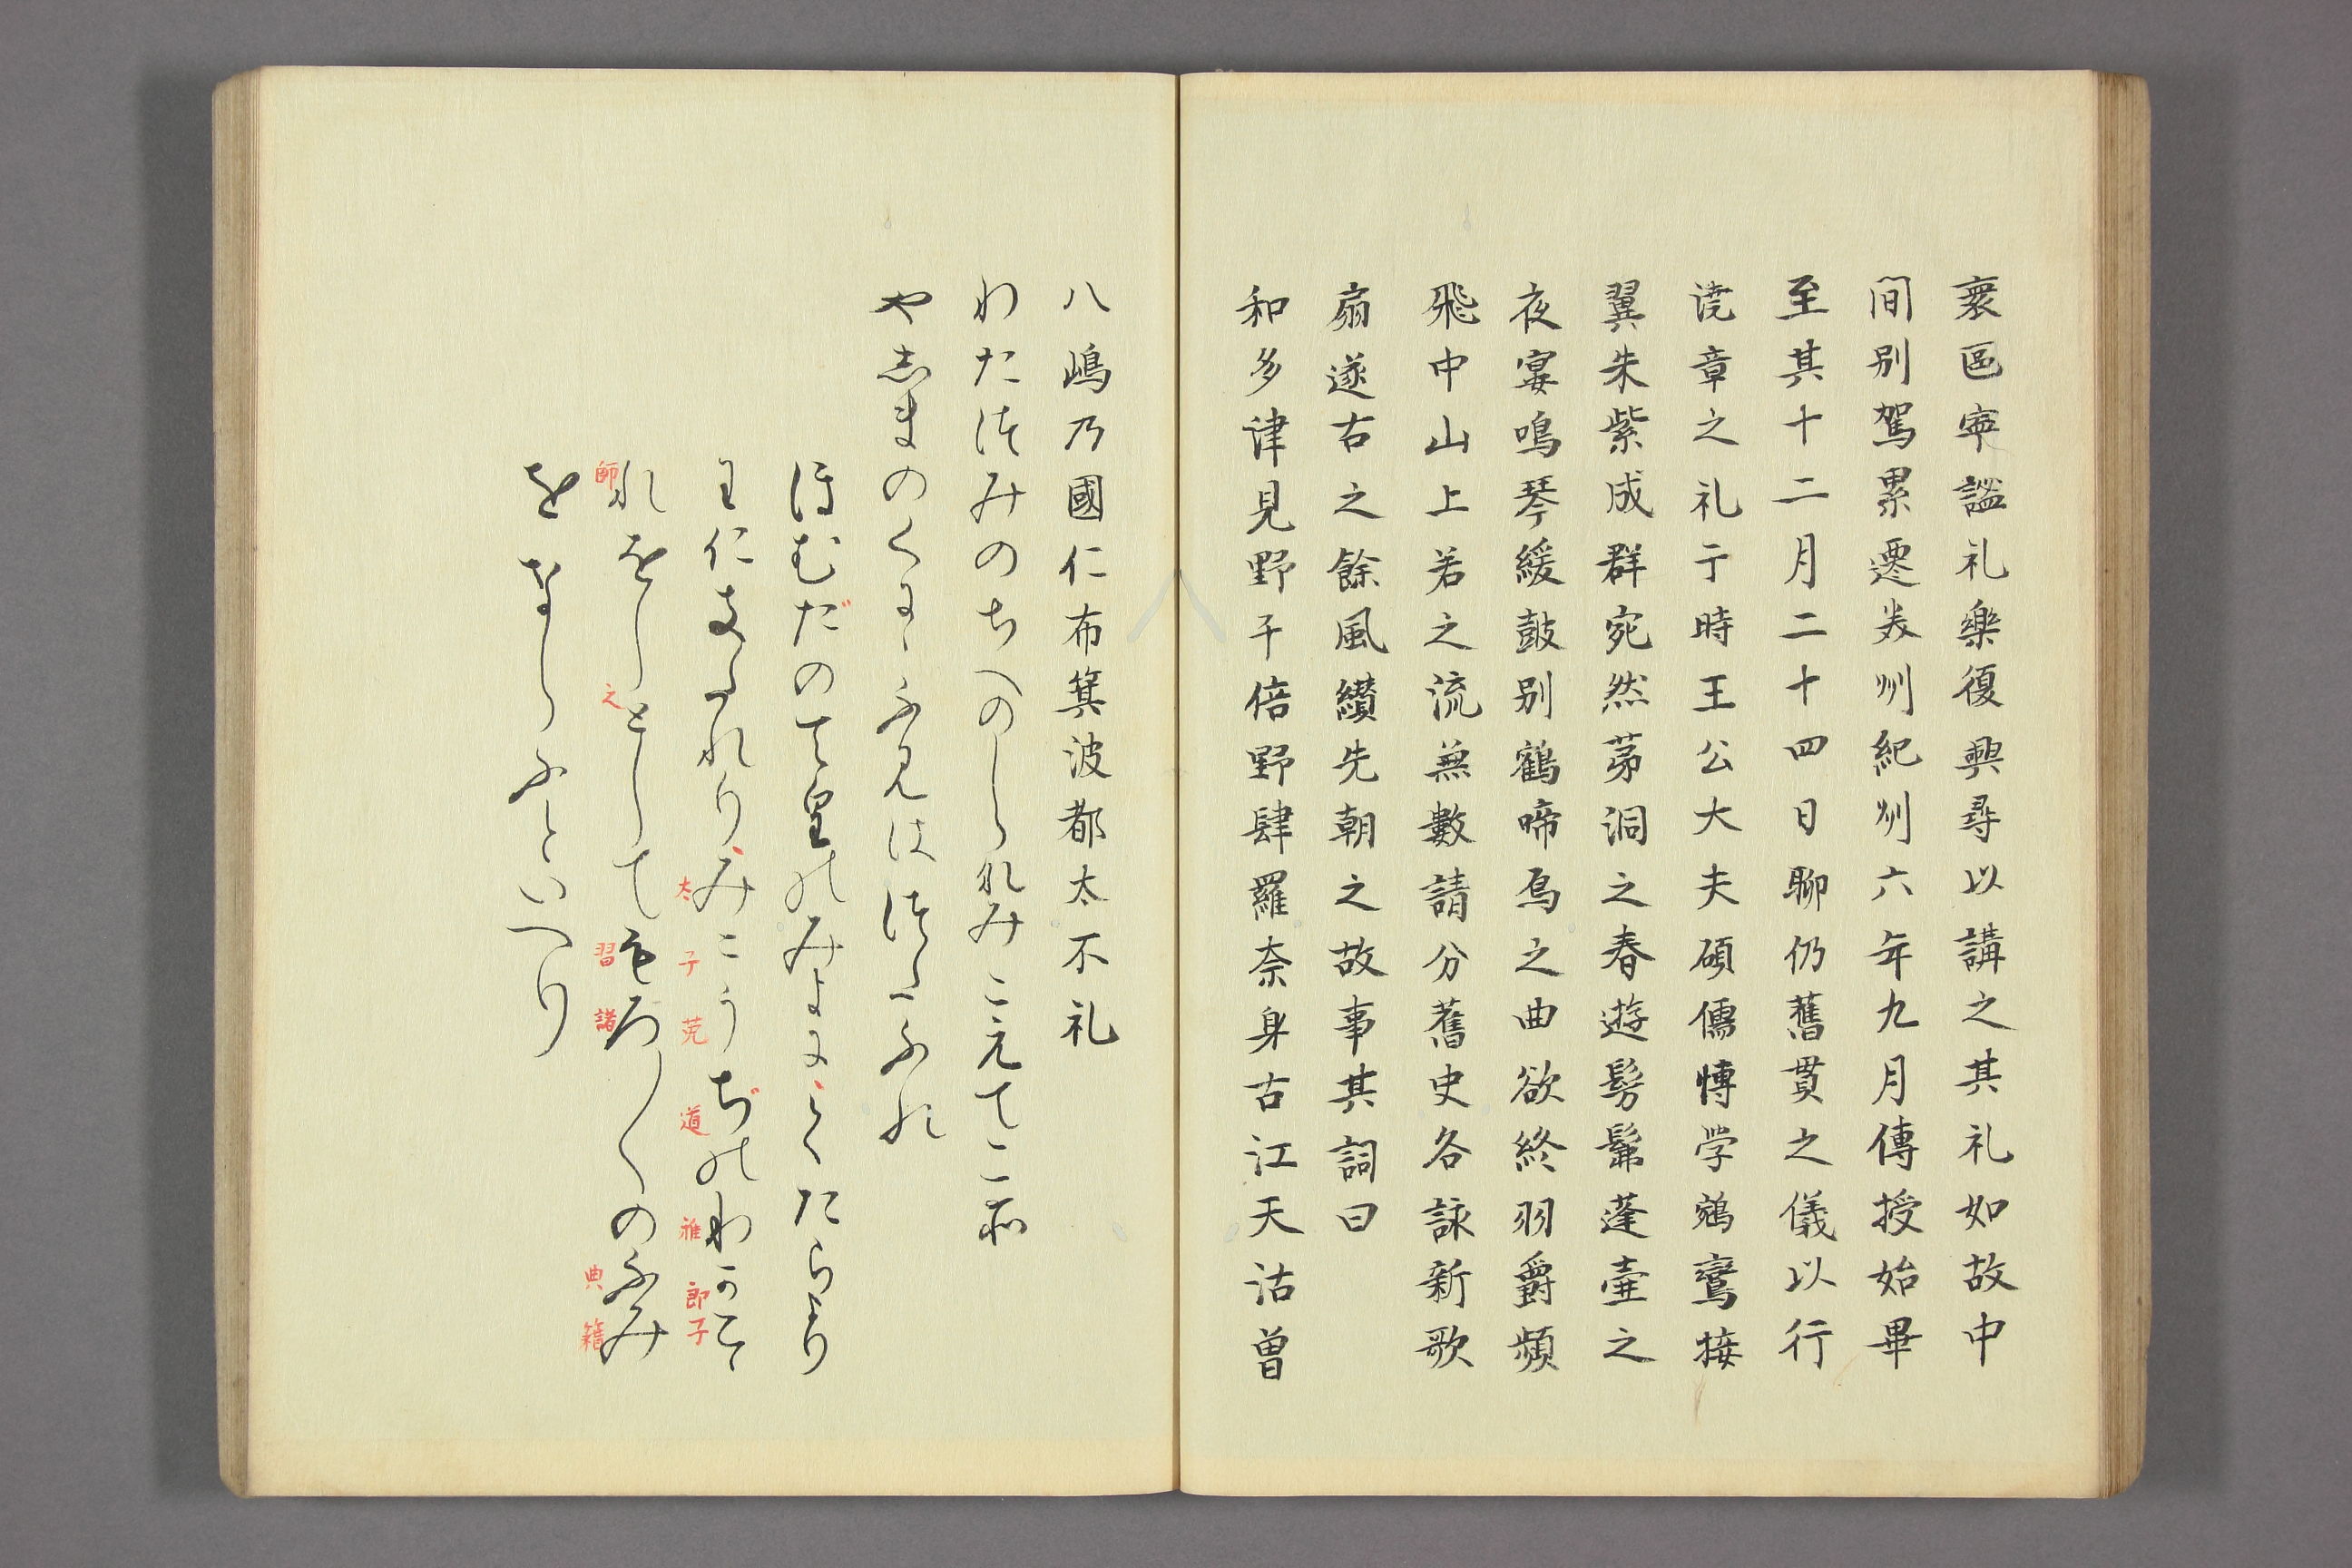 寰區寧謐礼樂復興尋以講之其礼如故中
間別駕累遷美州紀州六年九月傳授始畢
至其十二月二十四日聊仍舊貫之儀以行
竟章之礼于時王公大夫碩儒博学鵷鸞接
翼朱紫成群宛然茅洞之春遊髣髴蓬壷之
夜宴鳴琴緩鼓別鶴啼烏之曲欲終羽爵頻
飛中山上若之流無數請分舊史各詠新歌
扇遂古之餘風纉先朝之故事其詞曰
和多津見野千倍野肆羅奈身古江天沽曾
八嶋乃國仁布箕波都太不礼
わたつみのちへのしらなみこえてこそ
やしまのくにゝふみはつたふれ
ほむだの天皇のみよにくたらより
王仁まゐれりみこうぢのわかこ
太子菟道稚郎子
れをしとしてもろ〱のふみ
師之習諸典籍
をならふといへり